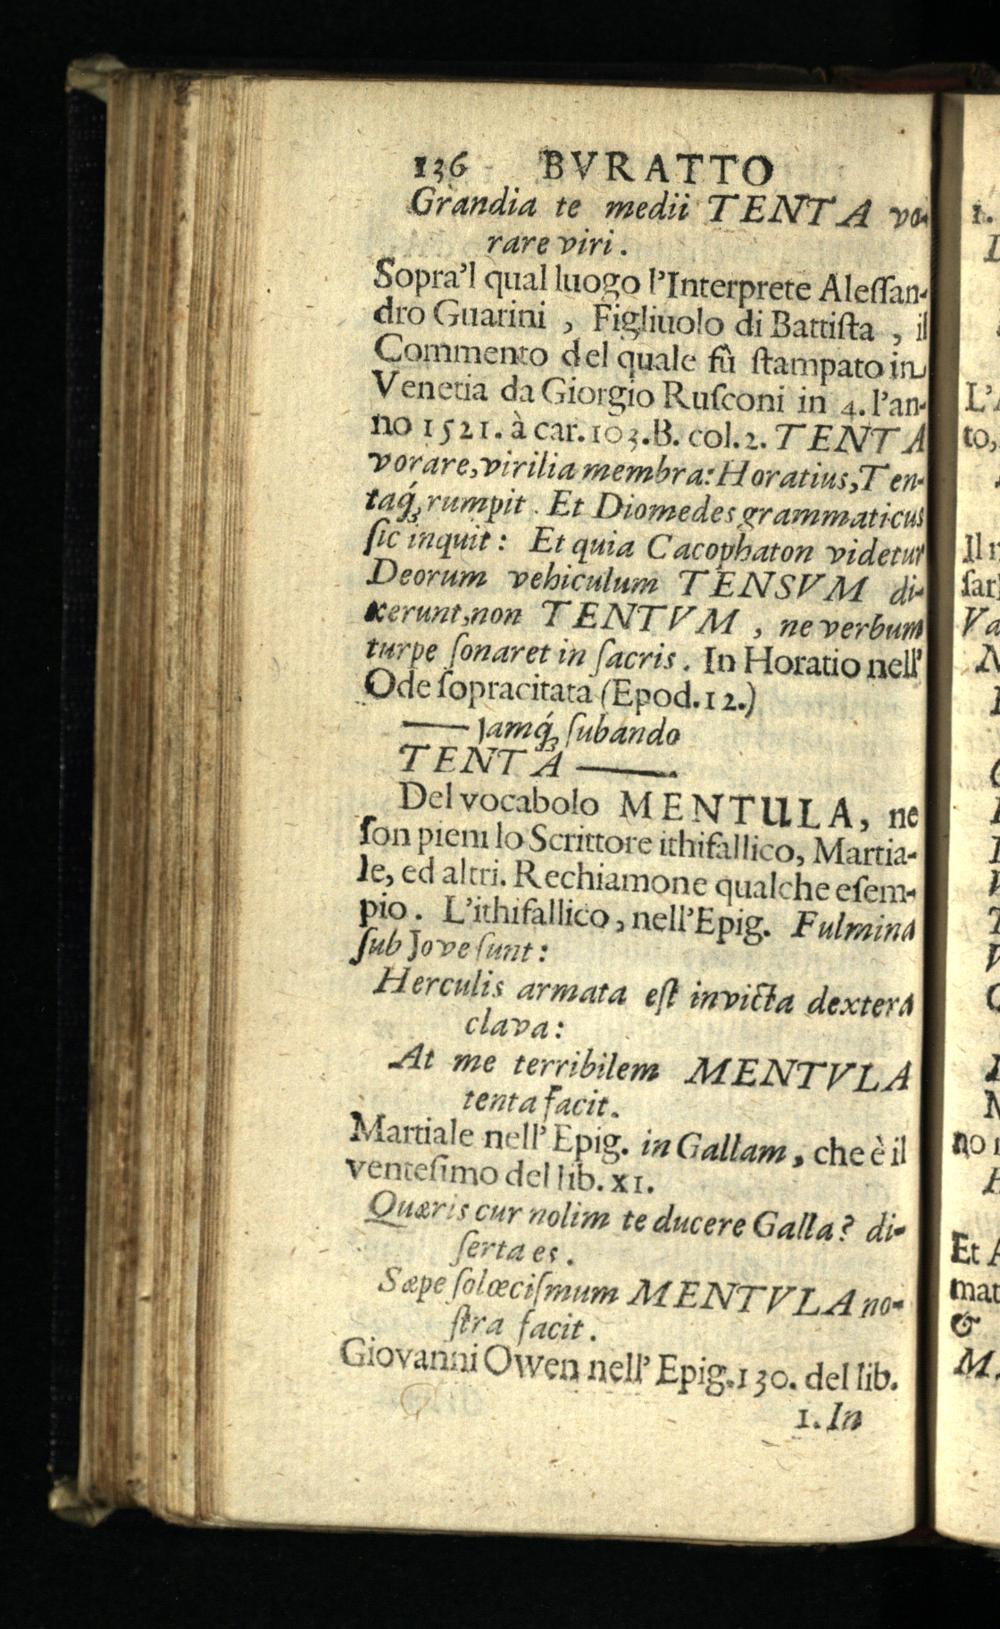 136 BVRATTO
Grandia te medii TENTA vo-
rare viri.
Sopra'l qual luogo l'Interprete Aleſſan-
dro Guarini, Figliuolo di Battiſta, il
Commento del quale fù ſtampato in
Venetia da Giorgio Ruſconi in 4. l'an-
no 1521. à car. 103. B. col. 2. TENTA
vorare, virilia membra: Horatius, Ten-
taq́ꝫ rumpit. Et Diomedes grammaticus
ſic inquit: Et quia Cacophaton videtur
Deorum vehiculum TENSVM di-
xerunt, non TENTVM, ne verbum
turpe ſonaret in ſacris. In Horatio nell'
Ode ſopracitata (Epod. 12.)
—— Jamq́ꝫ ſubando
TENTA ——.
Del vocabolo MENTULA, ne
ſon pieni lo Scrittore ithifallico, Martia-
le, ed altri. Rechiamone qualche eſem-
pio. L'ithifallico, nell'Epig. Fulmina
ſub Jove ſunt:
Herculis armata eſt invicta dextera
clava:
At me terribilem MENTVLA
tenta facit.
Martiale nell'Epig. in Gallam, che è il
venteſimo del lib. XI.
Quæris cur nolim te ducere Galla? di-
ſerta es.
Sæpe ſolœciſmum MENTVLA no-
ſtra facit.
Giovanni Owen nell'Epig. 130. del lib.
1. In